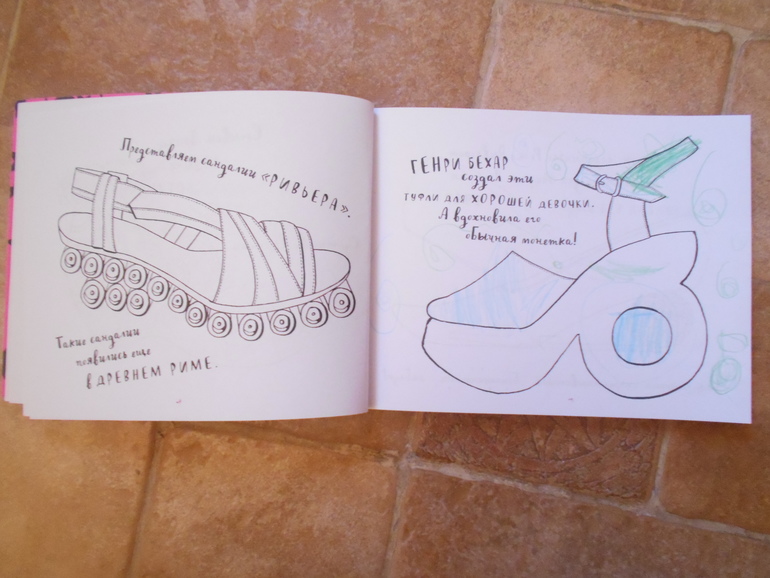 Представляем сандалии «РИВЬЕРА».
Такие сандалии
появились еще
в ДРЕВНЕМ РИМЕ.
ГЕНРИ БЕХАР
создал эти
ТУФЛИ ДЛЯ ХОРОШЕЙ ДЕВОЧКИ.
А вдохновила его
обычная монетка!